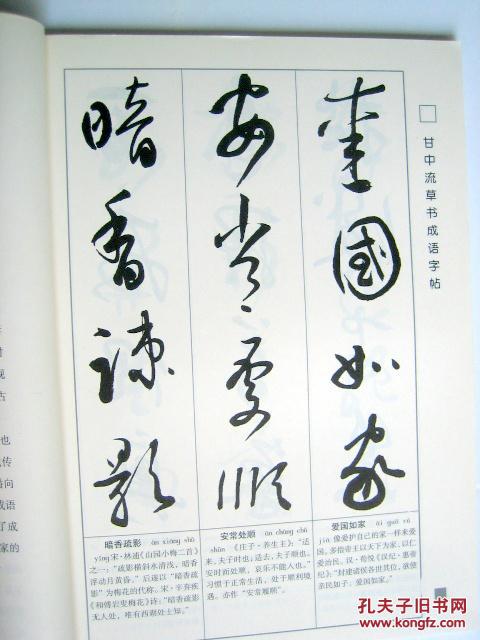 甘中流草书成语字帖
爱国如家
安常处顺
暗香疏影
爱国如家 ài guó rú
jiā 像爱护自己的家一样来爱
国。多指帝王以天下为家,以仁
爱治民。汉·荀悦《汉纪·惠帝
纪》:“封建诸侯各世其位,欲使
亲民如子,爱国如家。”
安常处顺 ān cháng chǔ
shùn 《庄子·养生主》:“适
来,夫子时也;适去,夫子顺也。
安时而处顺,哀乐不能入也。”
习惯于正常生活,处于顺利境
遇。亦作“安常履顺”。
暗香疏影 àn xiāng shū
yǐng 宋·林逋《山园小梅二首》
之一:“疏影横斜水清浅,暗香
浮动月黄昏。”后遂以“暗香疏
影”为梅花的代称。宋·辛弃疾
《和傅岩叟梅花》诗:“暗香疏影
无人处,唯有西湖处士知。”
也
传
向
成语
了成
家的
孔夫子旧书网